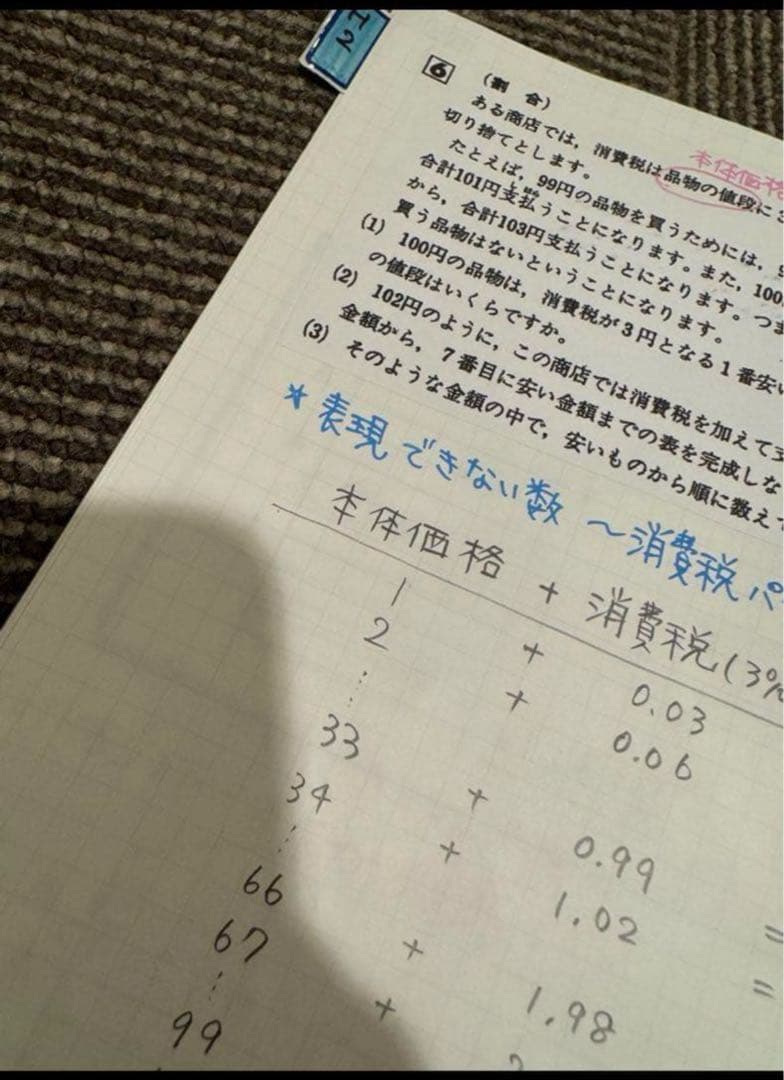 H2
6 (割 合)
本体価格
ある商店では，消費税は品物の値段に
切り捨てとします。
たとえば，99円の品物を買うためには，
合計101円支払うことになります。また，100
から，合計103円支払うことになります。つま
買う品物はないということになります。
(1) 100円の品物は，消費税が3円となる1番安い
の値段はいくらですか。
(2) 102円のように，この商店では消費税を加えて支
金額から，7番目に安い金額までの表を完成しな
(3) そのような金額の中で，安いものから順に数えて
*表現できない数 〜消費税パ
本体価格 + 消費税(3%
1 + 0.03
2 + 0.06
⋮
33 + 0.99
34 + 1.02 =
⋮
66 + 1.98 =
67 +
⋮
99